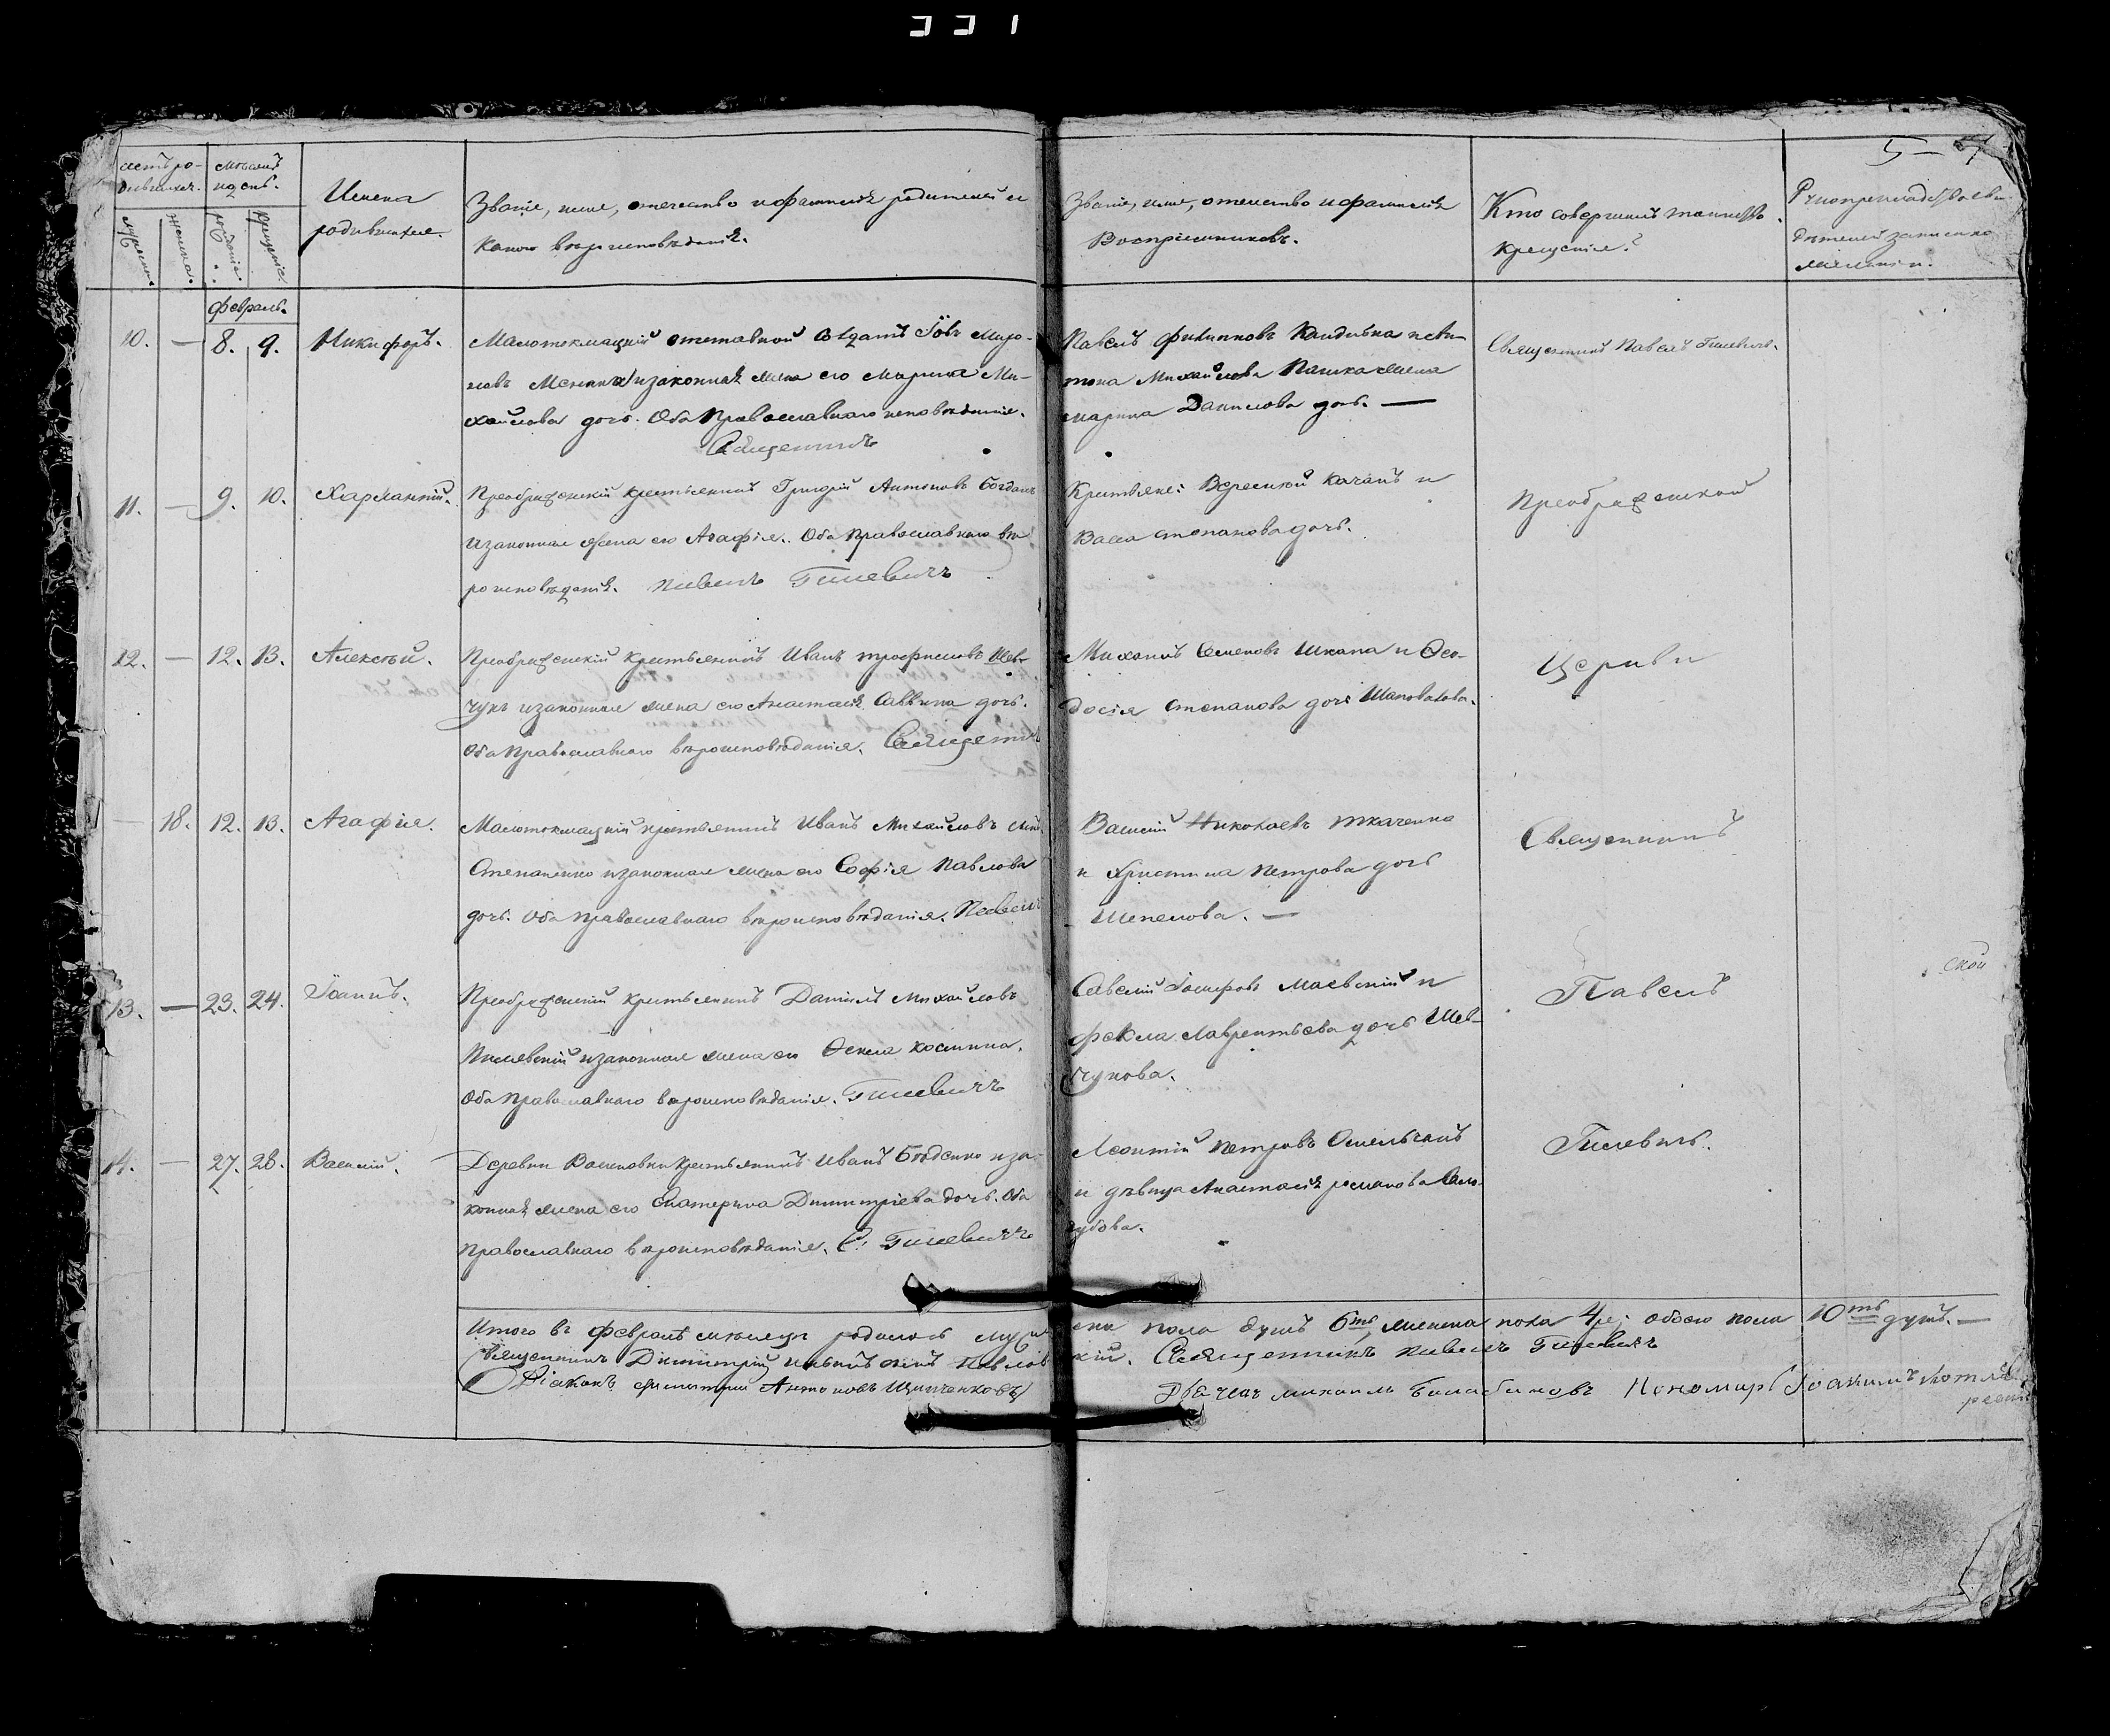 331
5 —
Счетъ ро-
дившихся.
Мѣсяцъ
и день.
Имена
родившихся.
Званіе, имя, отчество и фамилія родителей и
какого вѣроисповѣданія.
Званіе, имя, отчество и фамилія
Воспріемниковъ.
Кто совершилъ таинство
крещенія?
женска.
рожденія.
крещенія.
Февраль.
10. — 8. 9. Никифоръ.
Малотокмацкій отставной солдатъ Іовъ Миро-
новъ и законная жена его Марина Ми-
хайлова дочь. Оба Православнаго исповѣданія.
Священникъ
Павелъ Филиповъ
Михайлова Пашка жена
марина Данилова дочь. —
Священникъ Павелъ Гилевичъ.
11. — 9. 10. Харлампій.
Преображенскій крестьянинъ Григорій Антоновъ Богданъ
и законная жена его Агафія. Оба Православнаго вѣ
роисповѣданія. Павелъ Гилевичъ
Крестьяне: Качанъ и
Васса Степанова дочь.
Преображенской
12. — 12. 13. Алексѣй.
Преображенскій крестьянинъ Иванъ Трофимовъ Шев-
чукъ и законная жена его Анастасія Саввина дочь.
Оба Православнаго вѣроисповѣданія. Священникъ
Михаилъ Семеновъ Шкапа и Ѳео-
досія Степанова дочь Шаповалова.
Церкви
— 18. 12. 13. Агафія.
Малотокмацкій крестьянинъ Иванъ Михайловъ сынъ
Степаненко и законная жена его Софія Павлова
дочь. Оба православнаго вѣроисповѣданія. Павелъ
Василій Николаевъ Ткаченко
и Христина Петрова дочь
Шепелова. —
Священникъ
13. — 23. 24. Іоаннъ.
Преображенскій крестьянинъ Даніилъ Михайловъ
и законная жена его Ѳекла Космина.
Оба Православнаго вѣроисповѣданія. Гилевичъ
Савелій Іосифовъ Маевскій и
Фекла Лаврентьева дочь Шев-
чукова.
Павелъ
ской
14. — 27. 28. Василій.
Деревни крестьянинъ Иванъ и за-
конная жена его Екатерина Димитріева дочь. Оба
Православнаго вѣроисповѣданія. С. Гилевичъ
Леонтій Петровъ Омельчанъ
и дѣвица Анастасія Романова
губова.
Гилевичъ.
Итого въ Февралѣ мѣсяцѣ родилось муже ска пола душъ 6ть, женска пола 4ре; обоего пола 10ть душъ. —
Священникъ Димитрій Павлов скій. Священникъ Павелъ Гилевичъ
Діаконъ Димитрій Антоновъ Щитченковъ Дьячекъ Михаилъ Балабановъ Пономарь Іоакимъ